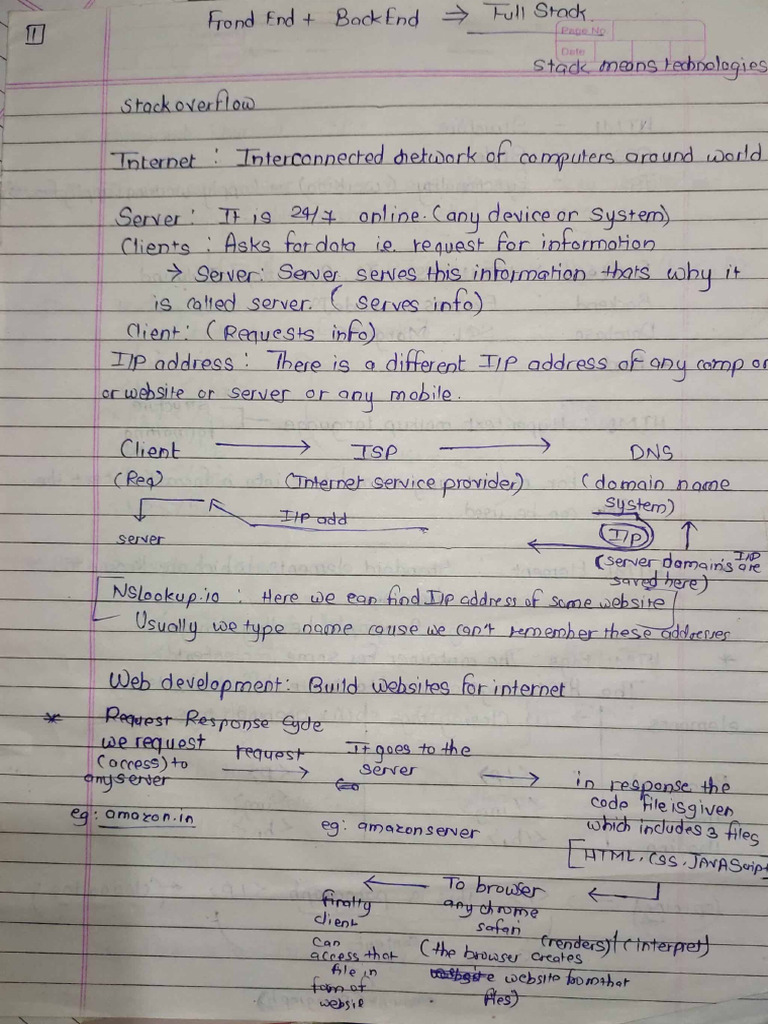 1
Frond End + Back End ⇒ Full Stack.
Page No
Date
Stack means technologies
Stack overflow
Internet : Interconnected network of computers around world
Server : It is 24/7 online. (any device or System)
Clients : Asks for data i.e. request for information
→ Server : Server serves this information thats why it
is called server. ( serves info)
Client : (Requests info)
I/P address : There is a different I/P address of any comp or
or website or server or any mobile.
Client → ISP → DNS
(Req) (Internet service provider) (domain name
system)
I/P add
server
I/P
(server domain's I/P are
saved here)
Nslookup.io : Here we can find I/p address of some website
Usually we type name cause we can't remember these addresses
Web development : Build websites for internet
* Request Response Cycle
we request
(access) to
any server
request →
It goes to the
server
↔
in response the
code file is given
which includes 3 files
[HTML, CSS, JAVAScript
eg : amazon.in
eg : amazon server
← To browser ←
any chrome
safari
(renders) / (interpret)
(the browser creates
website from that
files)
finally
client
can
access that
file in
form of
websie